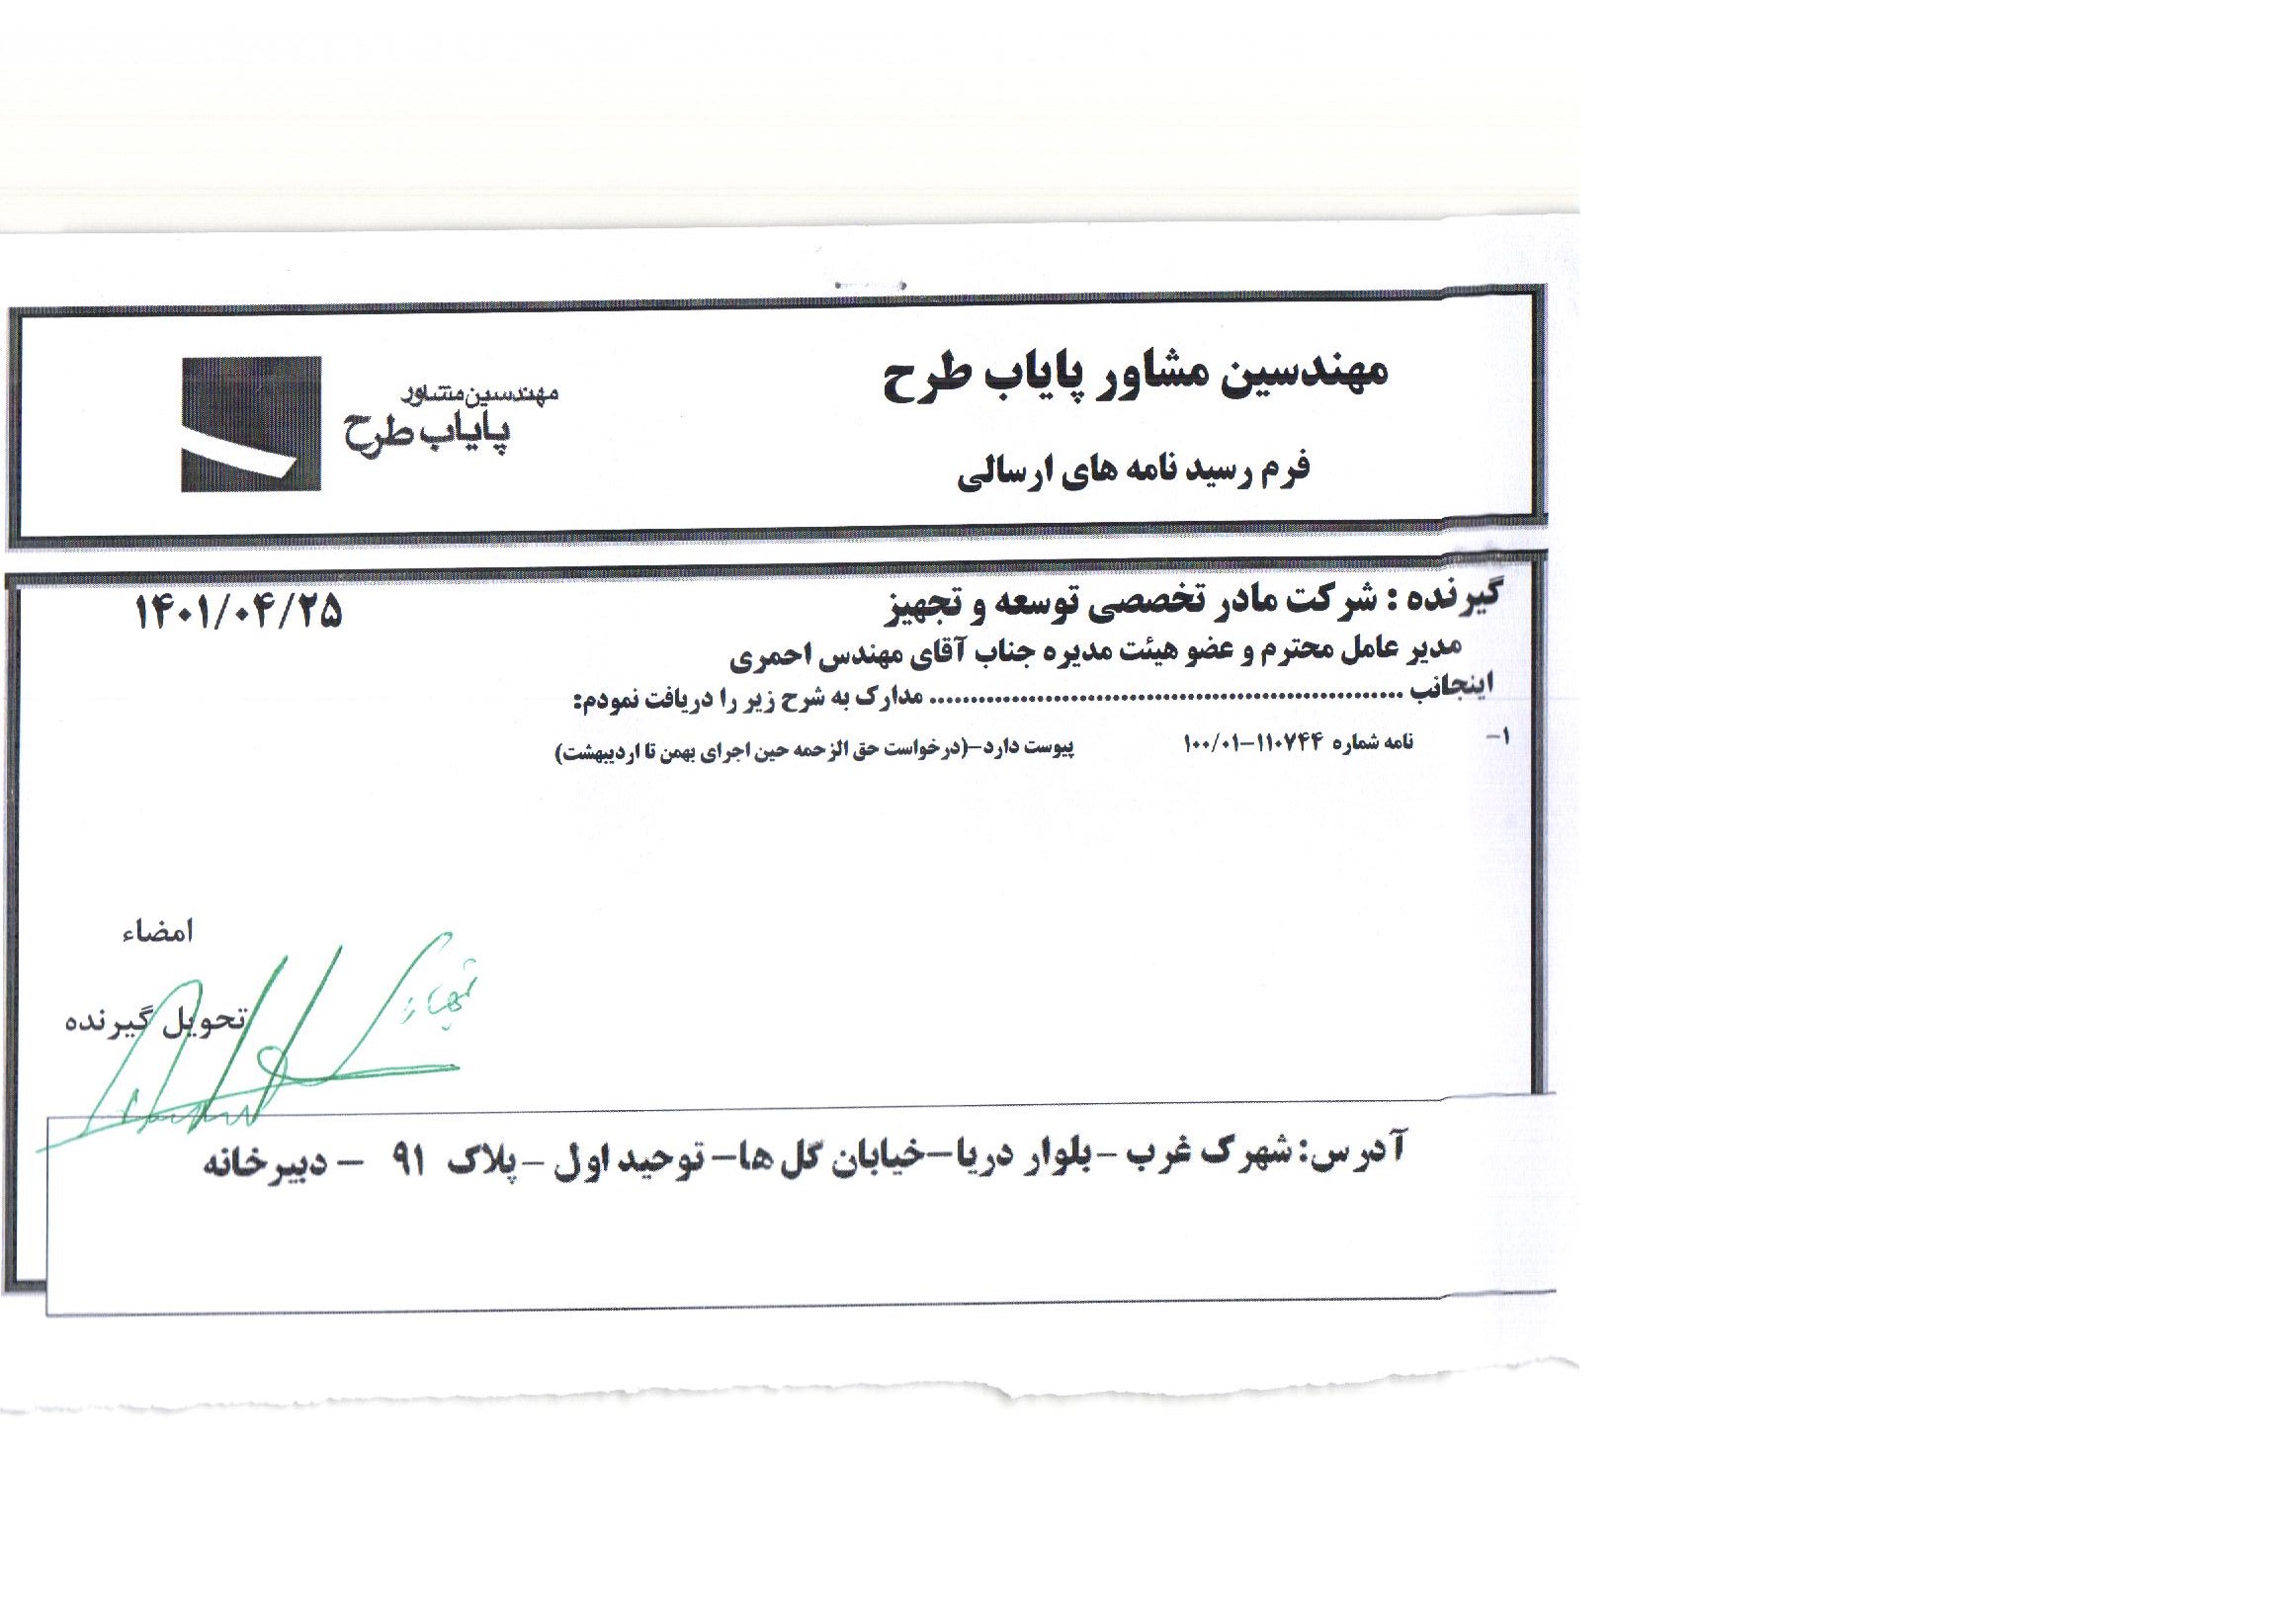 مهندسین مشاور پایاب طرح
مهندسین مشاور
پایاب طرح
فرم رسید نامه های ارسالی
گیرنده : شرکت مادر تخصصی توسعه و تجهیز
۱۴۰۱/۰۴/۲۵
مدیر عامل محترم و عضو هیئت مدیره جناب آقای مهندس احمری
اینجانب ........................................................ مدارک به شرح زیر را دریافت نمودم:
۱- نامه شماره ۱۰۰/۰۱-۱۱۰۷۴۴ پیوست دارد-(درخواست حق الزحمه حین اجرای بهمن تا اردیبهشت)
امضاء
تحویل گیرنده
آدرس: شهرک غرب – بلوار دریا–خیابان گل ها– توحید اول – پلاک ۹۱ – دبیرخانه